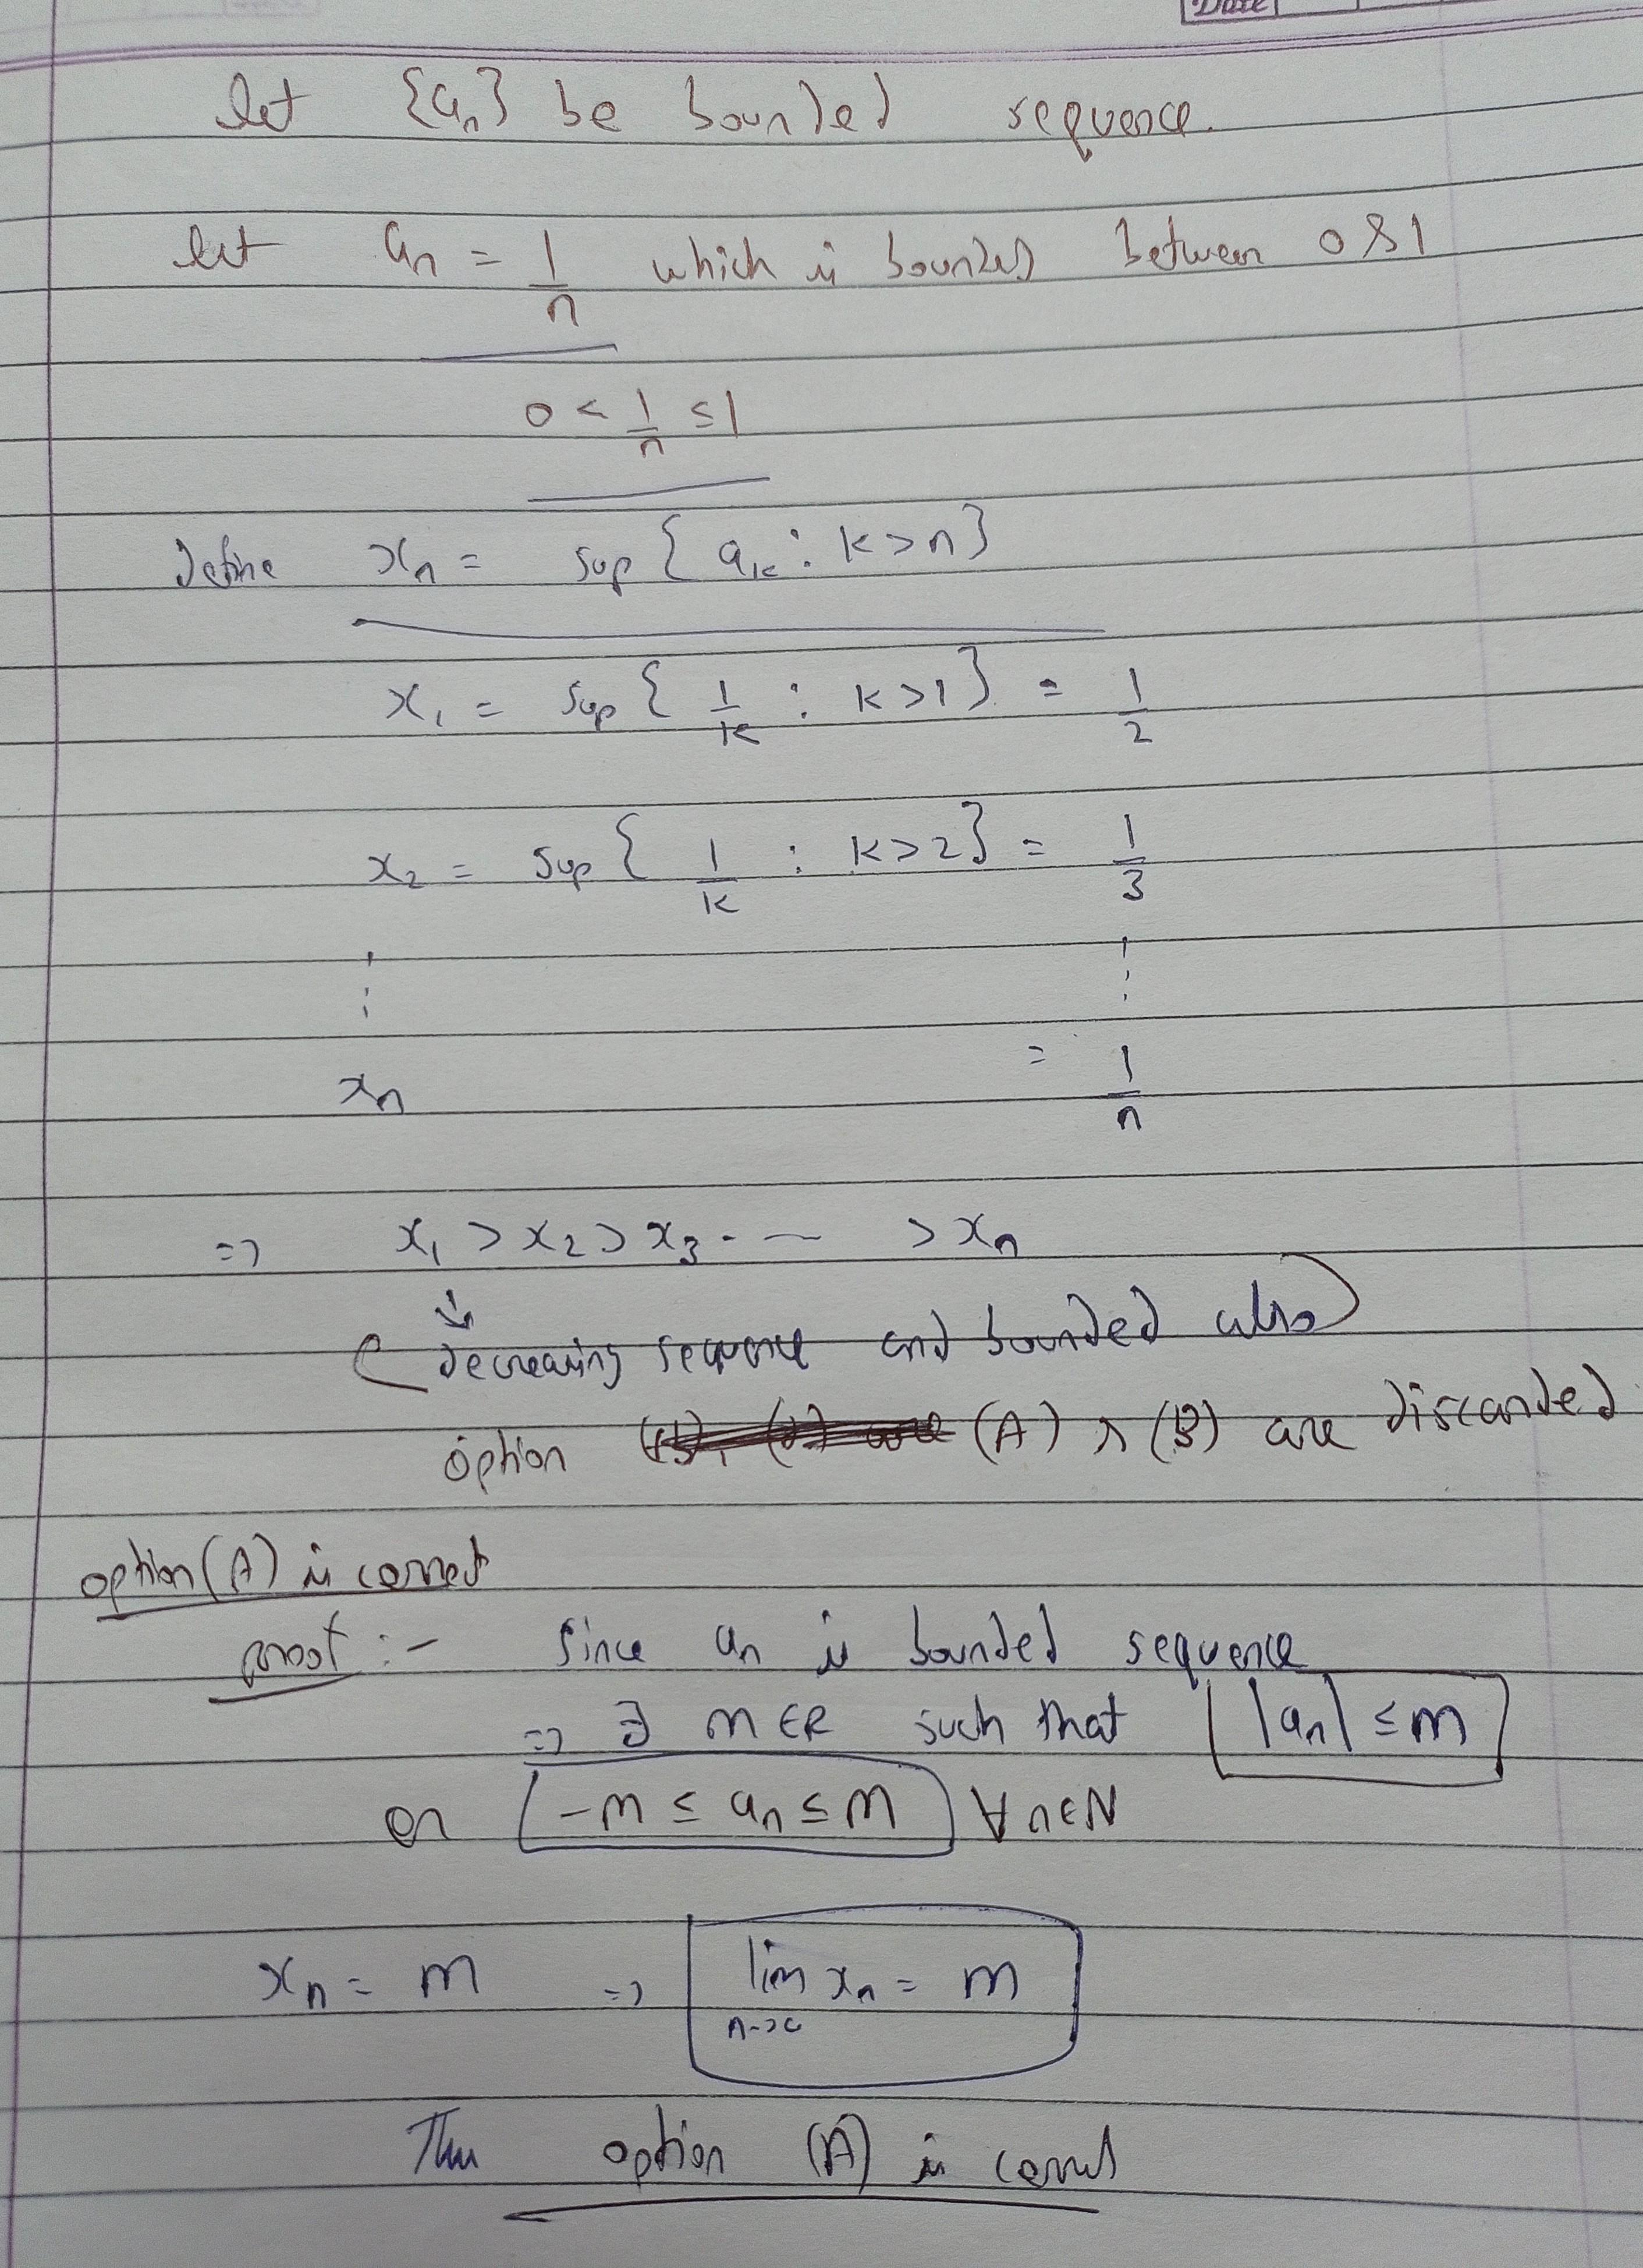 Date
let {aₙ} be bounded sequence.
let aₙ = 1/n which is bounded between 0 & 1
0 < 1/n ≤ 1
Define xₙ = sup{ aₖ : k > n}
x₁ = sup{ 1/k : k > 1} = 1/2
x₂ = sup{ 1/k : k > 2} = 1/3
⋮ ⋮
xₙ = 1/n
=> x₁ > x₂ > x₃ - - — > xₙ
(decreasing sequence and bounded also)
option (A) (B) are discarded
option (A) is correct
proof :- Since aₙ is bounded sequence
=> ∃ m ∈ R such that |aₙ| ≤ m
or -m ≤ aₙ ≤ m ∀ n ∈ N
xₙ = m => lim xₙ = m
n->∞
Thus option (A) is correct